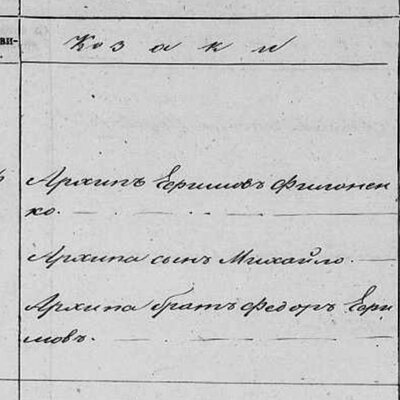 ви-
Козаки
Архипъ Ефимовъ Филонен
ко.
Архипа сынъ Михайло.
Архипа братъ Федоръ Ефи
мовъ.